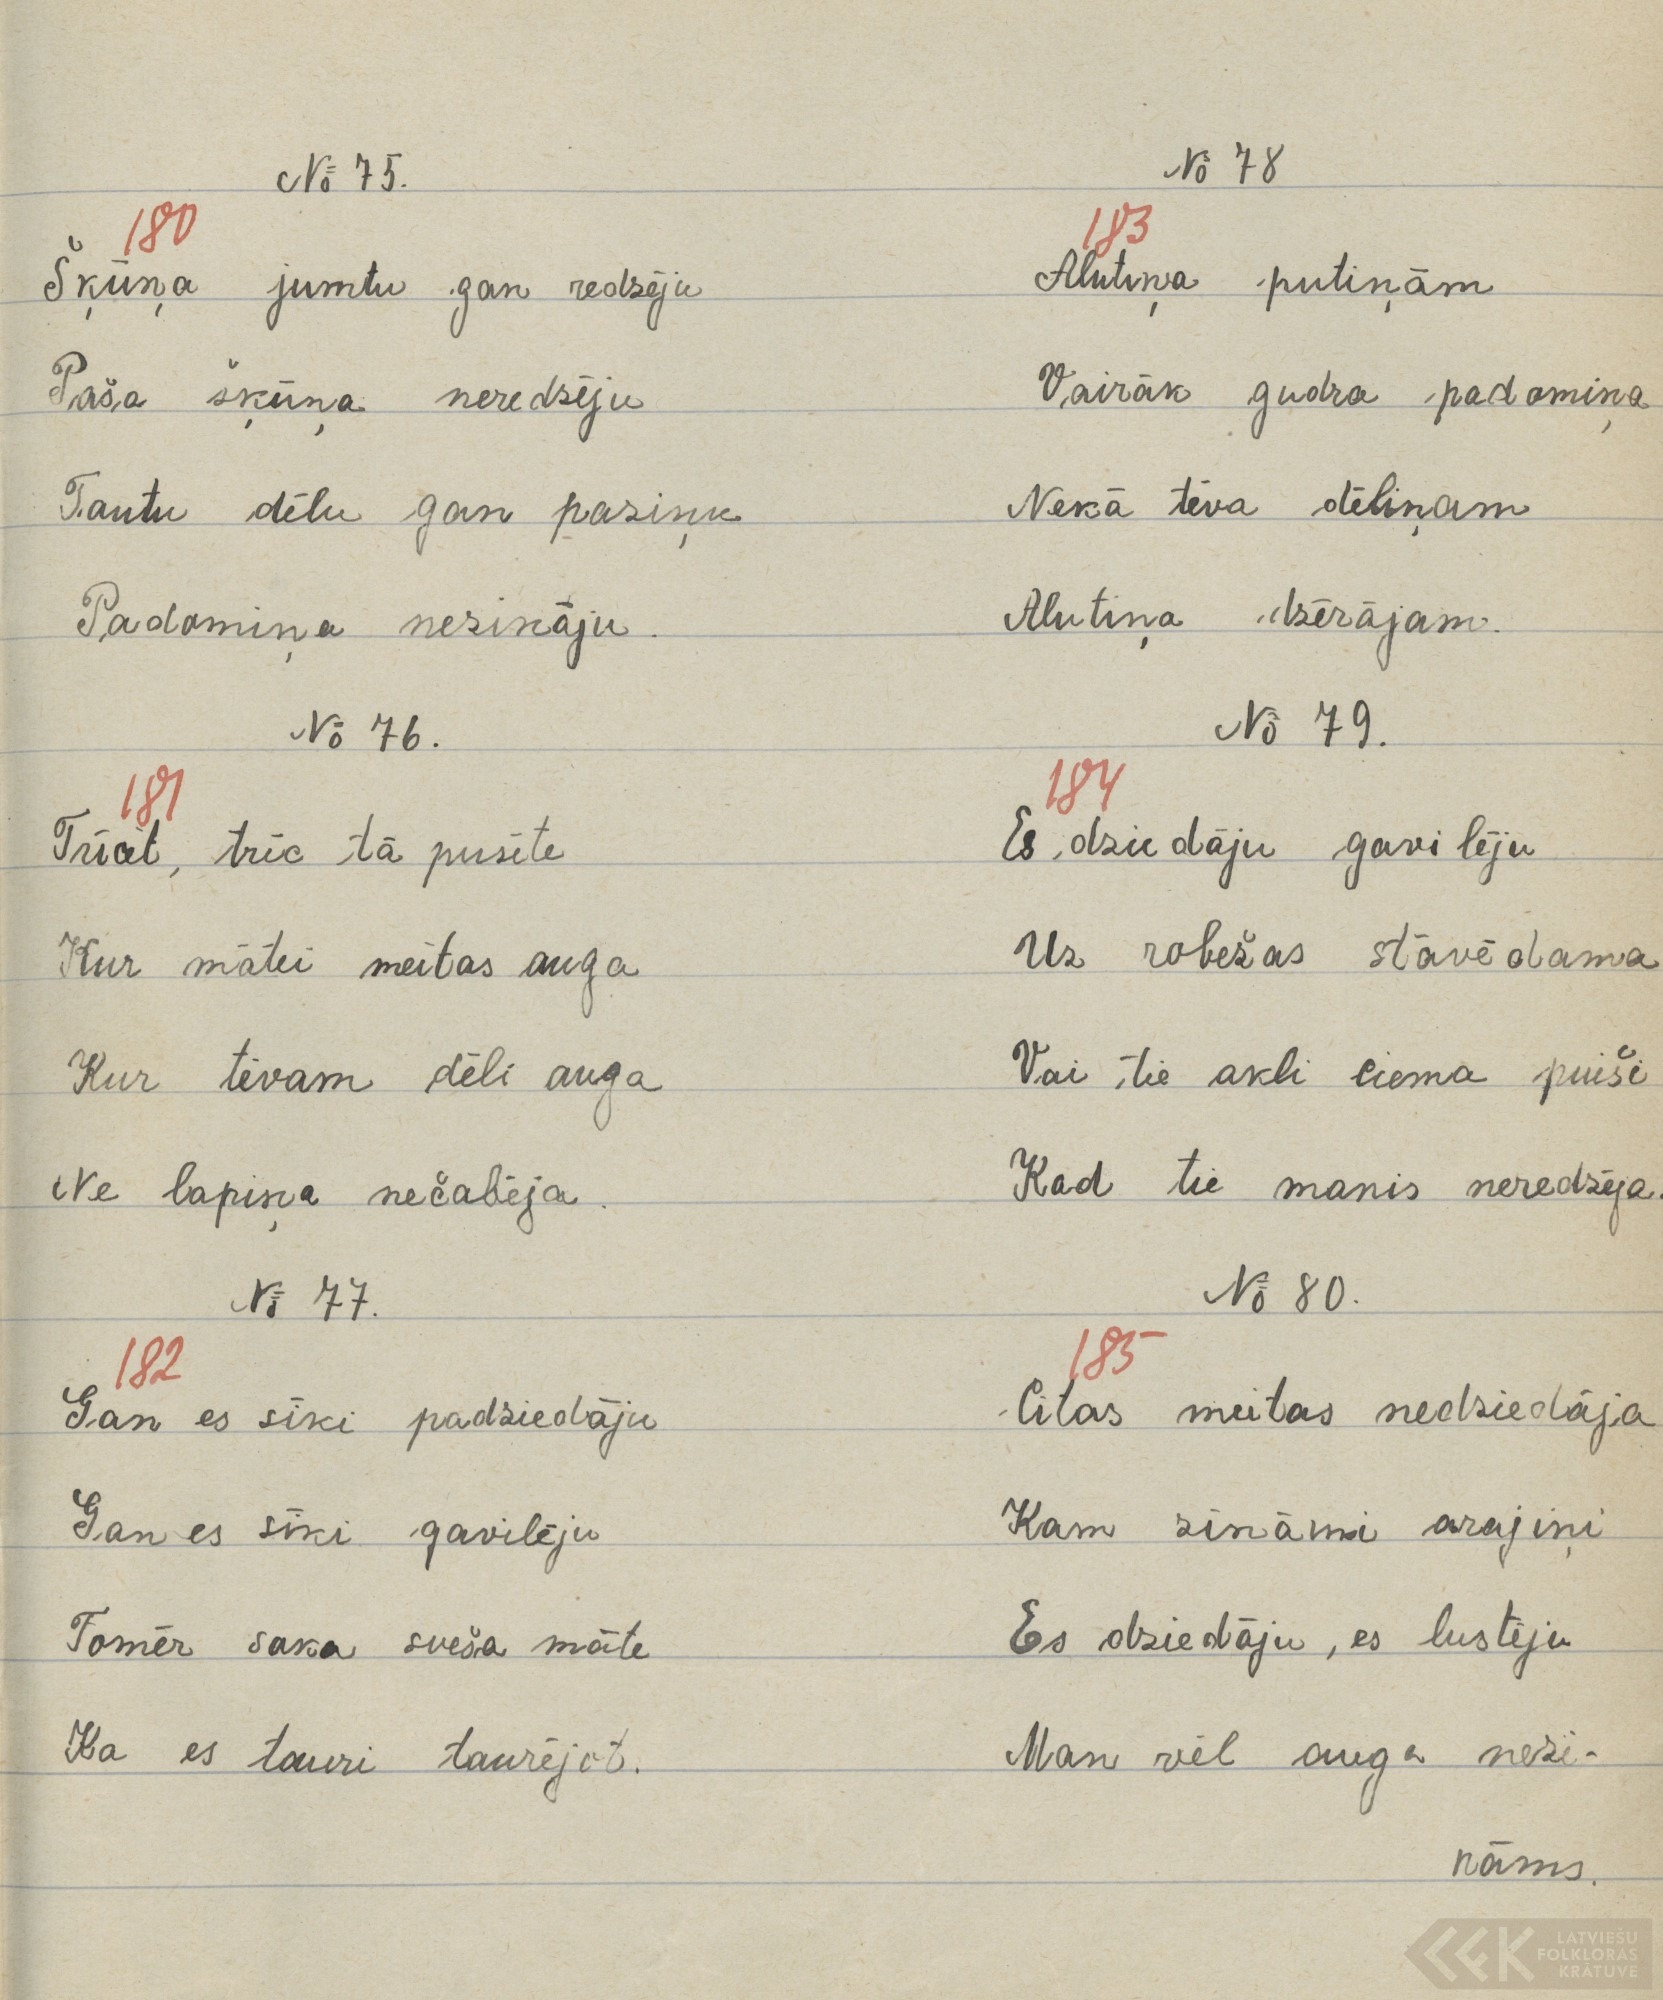 № 75.
180
Šķūņa jumtu gan redzēju
Paša šķūņa neredzēju
Tautu dēlu gan paziņu
Padomiņa nezināju.
№ 76.
181
Trīcēt, trīc tā pusīte
Kur mātei meitas auga
Kur tēvam dēli auga
Ne lapiņa nečabēja.
№ 77.
182
Gan es sīki padziedāju
Gan es sīki gavilēju
Tomēr saka sveša māte
Ka es tauri taurējot.
№ 78
183
Alutiņa putiņām
Vairāk gudra padomiņa
Nekā tēva dēliņam
Alutiņa dzērājam.
№ 79.
184
Es dziedāju gavilēju
Uz robežas stāvēdama
Vai tie akli ciema puiši
Kad tie manis neredzēja.
№ 80.
185
Citas meitas nedziedāja
Kam zināmi arajiņi
Es dziedāju, es lustēju
Man vēl auga nezi-
nāms.
LATVIEŠU
FOLKLORAS
KRĀTUVE